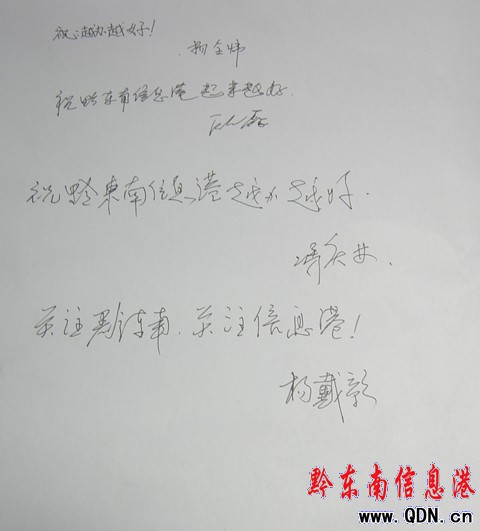 祝:越办越好!
杨全炜
祝黔东南信息港起来越好.
祝黔東南信息港越办越好.
关注黔东南.关注信息港!
杨戴彰
黔东南信息港
www.QDN.cn